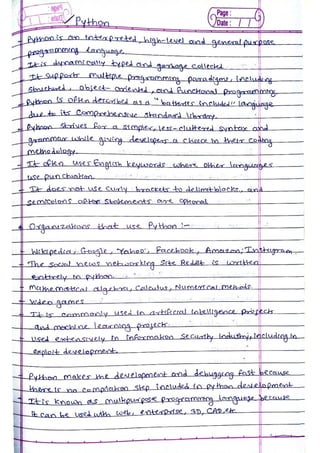 Page:
Date: / /
Python
- Python is an interpreted, high-level and general purpose
programming language.
- It is dynamically typed and garbage collected
- It supports multiple programming paradigms, including
structured, object-oriented, and functional programming.
- Python is often described as a "batteries included" language
due to its comprehensive standard library.
- Python strives for a simpler, less-cluttered syntax and
grammar while giving developers a choice in their coding
methodology.
- It often uses English keywords where other languages
use punctuation.
- It does not use curly brackets to delimit blocks, and
semicolons after statements are optional
Organizations that use Python :-
- Wikipedia, Google, Yahoo!, Facebook, Amazon, Instagram
- The social news networking site Reddit is written
entirely in python
- Mathematical algebra, Calculus, Numerical methods
- Video games
- It is commonly used in artificial intelligence projects
and machine learning projects.
- Used extensively in information security industry, including in
exploit development.
- Python makes the development and debugging fast because
there is no compilation step included in python development
- It is known as multipurpose programming language because
it can be used with web, enterprise, 3D, CAD, etc